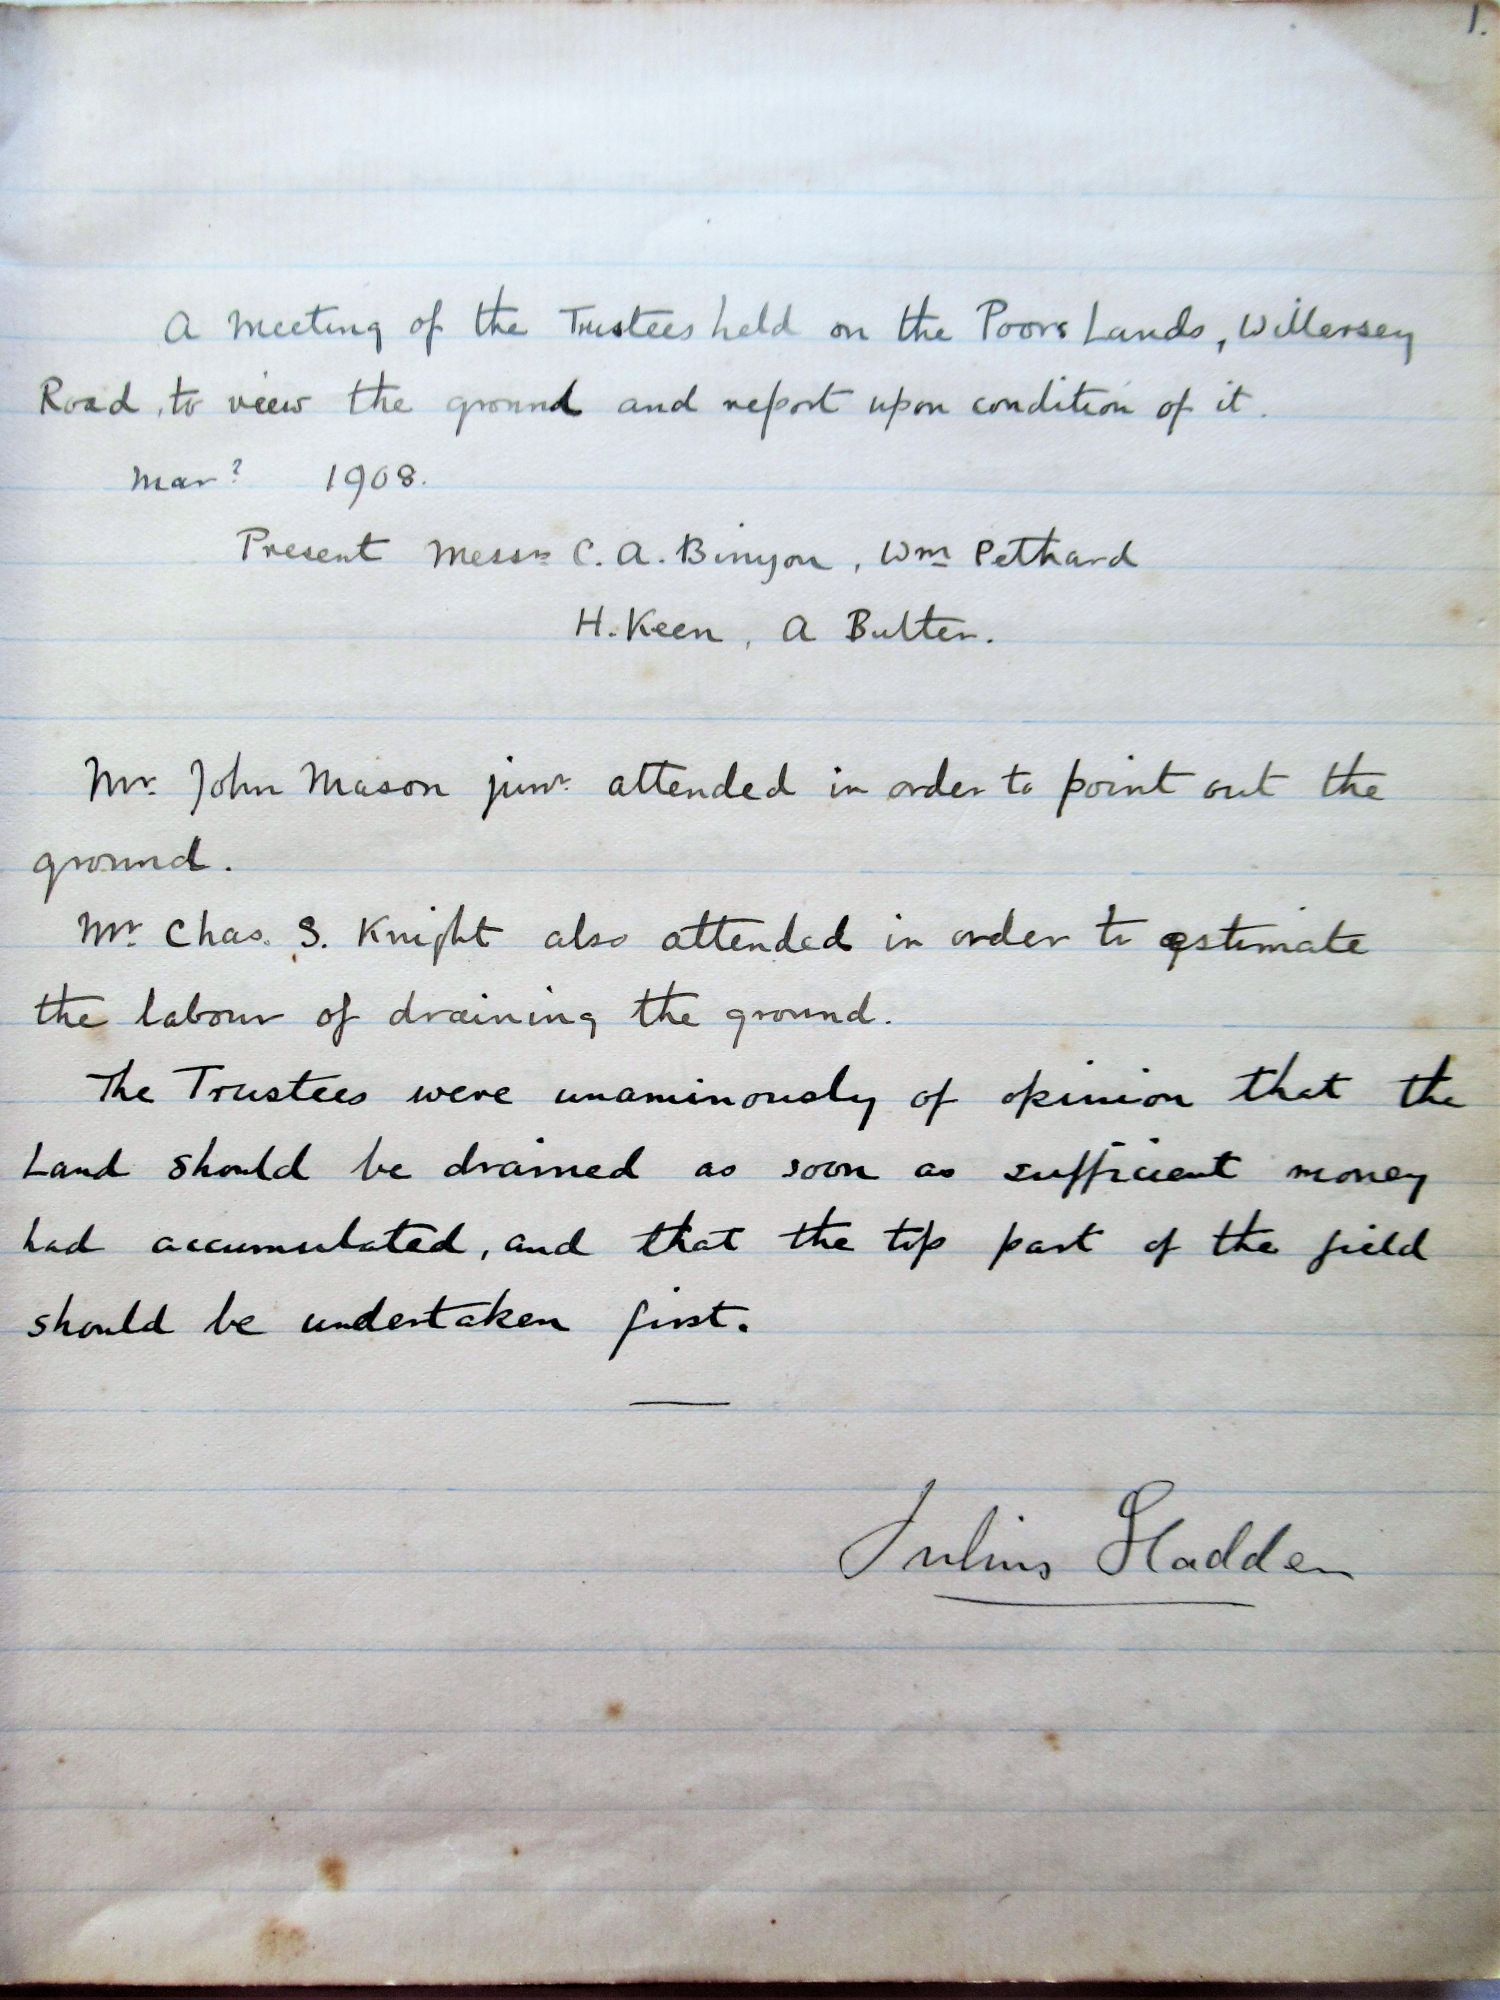 1.
A meeting of the Trustees held on the Poors Lands, Willersey
Road, to view the ground and report upon condition of it.
Mar? 1908.
Present Messrs C. A. Binyon, Wm Pethard
H. Keen, A Butler.
Mr. John Mason junr. attended in order to point out the
ground.
Mr Chas. S. Knight also attended in order to estimate
the labour of draining the ground.
The Trustees were unaminously of opinion that the
Land should be drained as soon as sufficient money
had accumulated, and that the top part of the field
should be undertaken first.
Julius Hadden